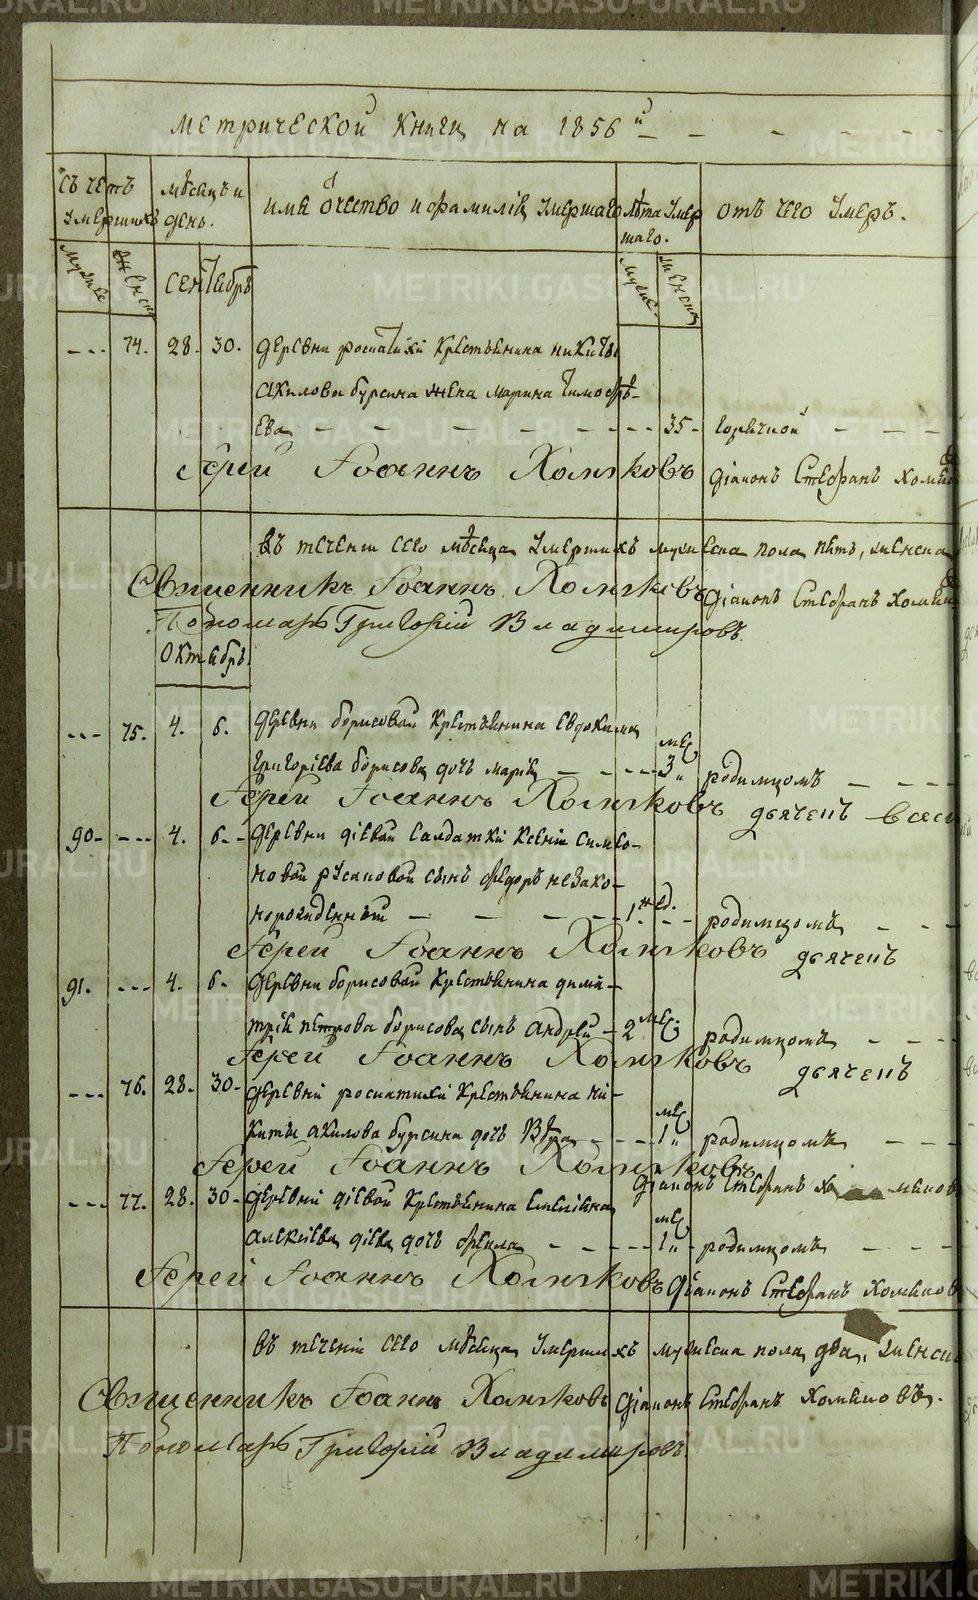 метрической книги на 1856 й
Съ четъ умершихъ
мѣсяцъ и день.
имя очество и фамилія умершаго
лѣта умершаго.
отъ чего умеръ.
мужеск женска
сентябрь
мужес. женска
--- 74. 28. 30. деревни роспатихи Крестьянина никиты
акилова бурсина жена марина тимофѣ-
ева 35 - горячкой
Іерей Іоаннъ Холмяковъ діаконъ Стефанъ
въ теченіи сего мѣсяца умершихъ мужеска пола пять, женска
Священникъ Іоаннъ Холмяковъ діаконъ Стефанъ
Пономарь Григорій Владимировъ.
Октябрь
--- 75. 4. 6. деревни борисовой Крестьянина Евдокима
Григоріева борисова дочь марія --- 3 мес. родимцомъ
Іерей Іоаннъ Холмяковъ дьячекъ
90 - --- 4. 6 - деревни діевой салдатки Ксеніи симео-
новой русаковой сынъ федоръ незако-
норожденный - 1 нед. - родимцомъ
Іерей Іоаннъ Холмяковъ дьячекъ
91. --- 4. 6 - деревни борисовой Крестьянина дими-
трія петрова борисова сынъ андрей - 2 мес. родимцомъ
Іерей Іоаннъ Холмяковъ дьячекъ
--- 76. 28. 30 - деревни роспатихи Крестьянина ни-
киты акилова бурсина дочь Вѣра --- 1 мес. родимцомъ
Іерей Іоаннъ Холмяковъ
діаконъ Стефанъ
--- 77. 28. 30 - деревни діевой Крестьянина Емеліяна
алексіева діева дочь фекла --- 1 мес. - родимцомъ
Іерей Іоаннъ Холмяковъ діаконъ Стефанъ
въ теченіи сего мѣсяца умершихъ мужеска пола два,
Священникъ Іоаннъ Холмяковъ діаконъ Стефанъ
Пономарь Григорій Владимировъ.
METRIKI.GASO-URAL.RU